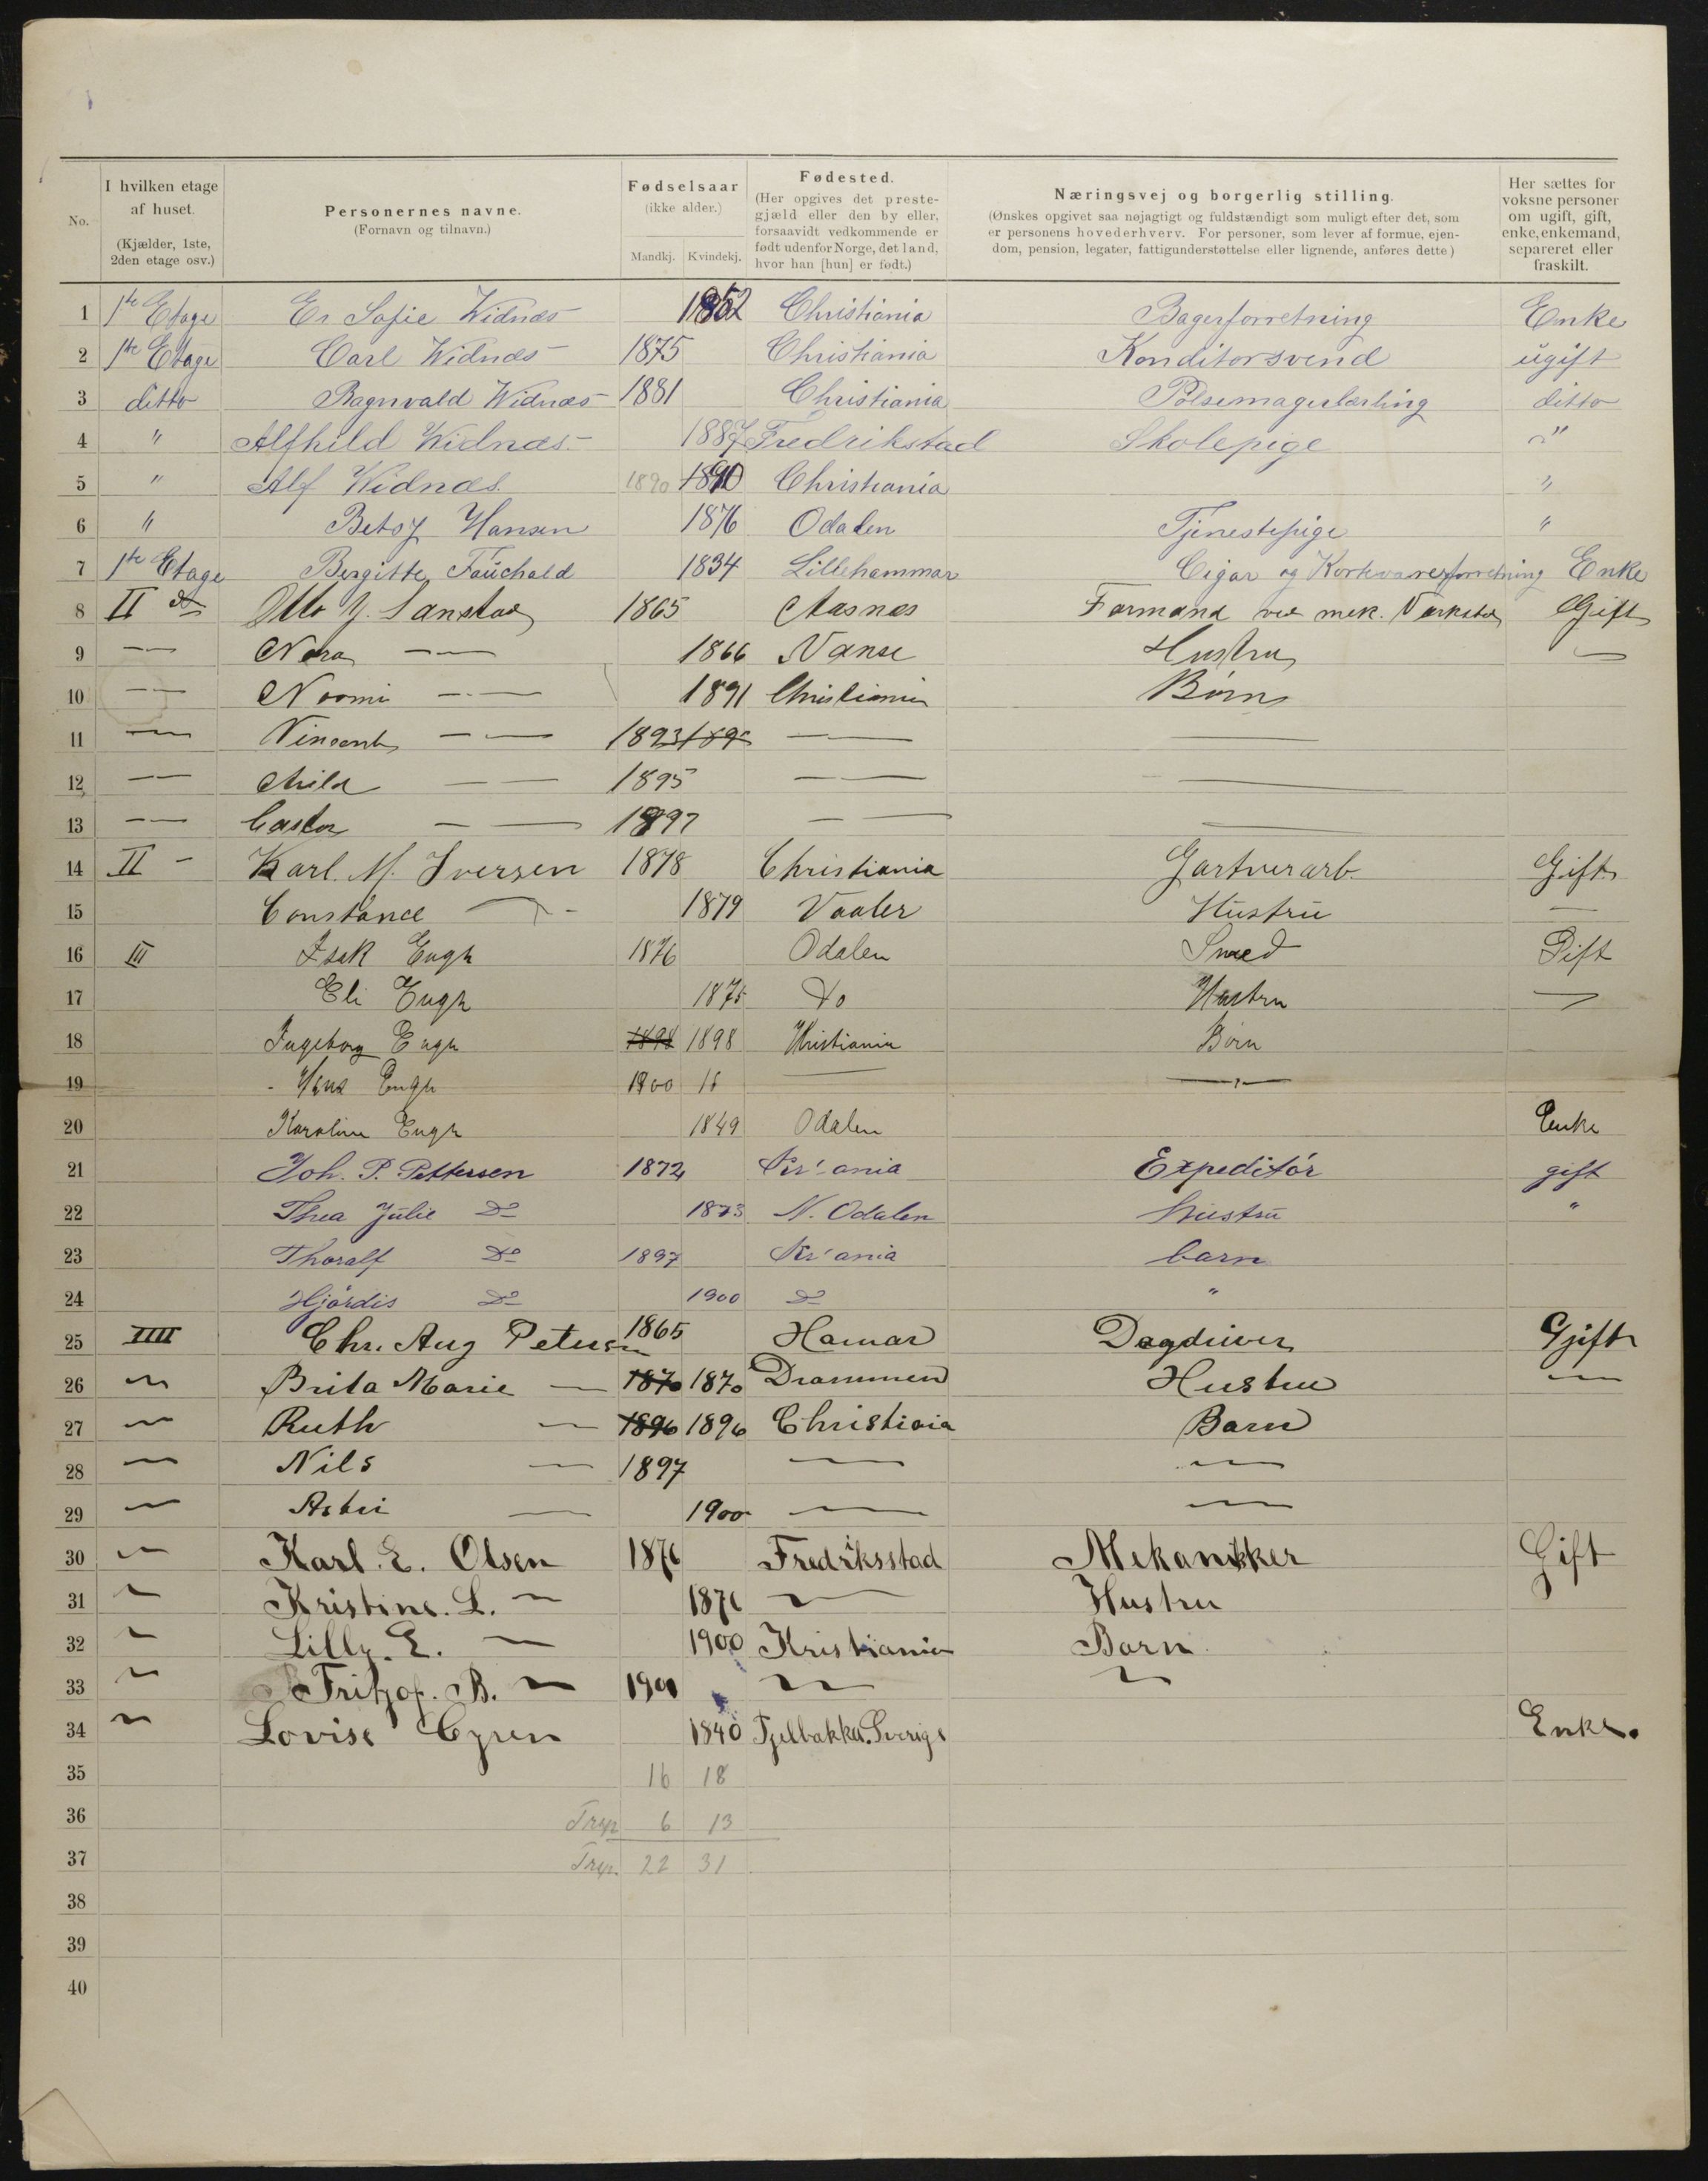 No. | I hvilken etage af huset. (Kjælder, 1ste, 2den etage osv.) | Personernes navne. (Fornavn og tilnavn.) | Fødselsaar (ikke alder.) Mandkj. Kvindekj. | Fødested. (Her opgives det prestegjæld eller den by eller, forsaavidt vedkommende er født udenfor Norge, det land, hvor han [hun] er født.) | Næringsvej og borgerlig stilling. (Ønskes opgivet saa nøjagtigt og fuldstændigt som muligt efter det, som er personens hovederhverv. For personer, som lever af formue, ejendom, pension, legater, fattigunderstøttelse eller lignende, anføres dette) | Her sættes for voksne personer om ugift, gift, enke, enkemand, separeret eller fraskilt.
1 1ste Etage Er. Sofie Widnæs 1852 Christiania Bagerforretning Enke
2 1ste Etage Carl Widnæs 1875 Christiania Konditorsvend ugift
3 ditto Ragnvald Widnæs 1881 Christiania Pølsemagerlærling ditto
4 " Alfhild Widnæs 1887 Fredrikstad Skolepige "
5 " Alf Widnæs 1890 1890 Christiania "
6 " Betsy Hansen 1876 Odalen Tjenestepige "
7 1ste Etage Bergitte Fauchald 1834 Lillehammar Cigar og Kortevareforretning Enke
8 II do Otto 1865 Aasnæs Formand ved mek. Værksted Gift
9 — Nora — 1866 Vanse Hustru —
10 — Noomi — 1891 Christiania Børn
11 — Vincent — 1893 — —
12 — — 1895 — —
13 — Castor — 1897 — —
14 II - Karl. M. Iversen 1878 Christiania Gartnerarb. Gift
15 Constance — 1879 Vaaler Hustru —
16 III Isak Engh 1876 Odalen Smed Gift
17 Eli Engh 1875 Do Hustru —
18 Ingeborg Engh 1898 1898 Khristiania Børn
19 Hans Engh 1900 — —
20 Karoline Engh 1849 Odalen Enke
21 Joh. P. Pettersen 1872 Kr'ania Expeditør gift
22 Thea Julie Do 1873 N. Odalen hustru "
23 Thoralf Do 1897 Kr'ania barn
24 Hjørdis Do 1900 Do "
25 IIII Chr. Aug Petersen 1865 Hamar Dagdriver Gift
26 — Brita Marie — 1870 1870 Drammen Hustru —
27 — Ruth — 1896 1896 Christiania Barn
28 — Nils — 1897 — —
29 — Astri — 1900 — —
30 — Karl. E. Olsen 1876 Fredriksstad Mekanikker Gift
31 — Kristine. L. — 1876 — Hustru
32 — Lilly. E. — 1900 Kristiania Barn
33 — Fritjof. B. — 1900 — —
34 — Lovise 1840 Fjelbakka. Sverige Enke.
35 16 18
36 6 13
37 22 31
38
39
40